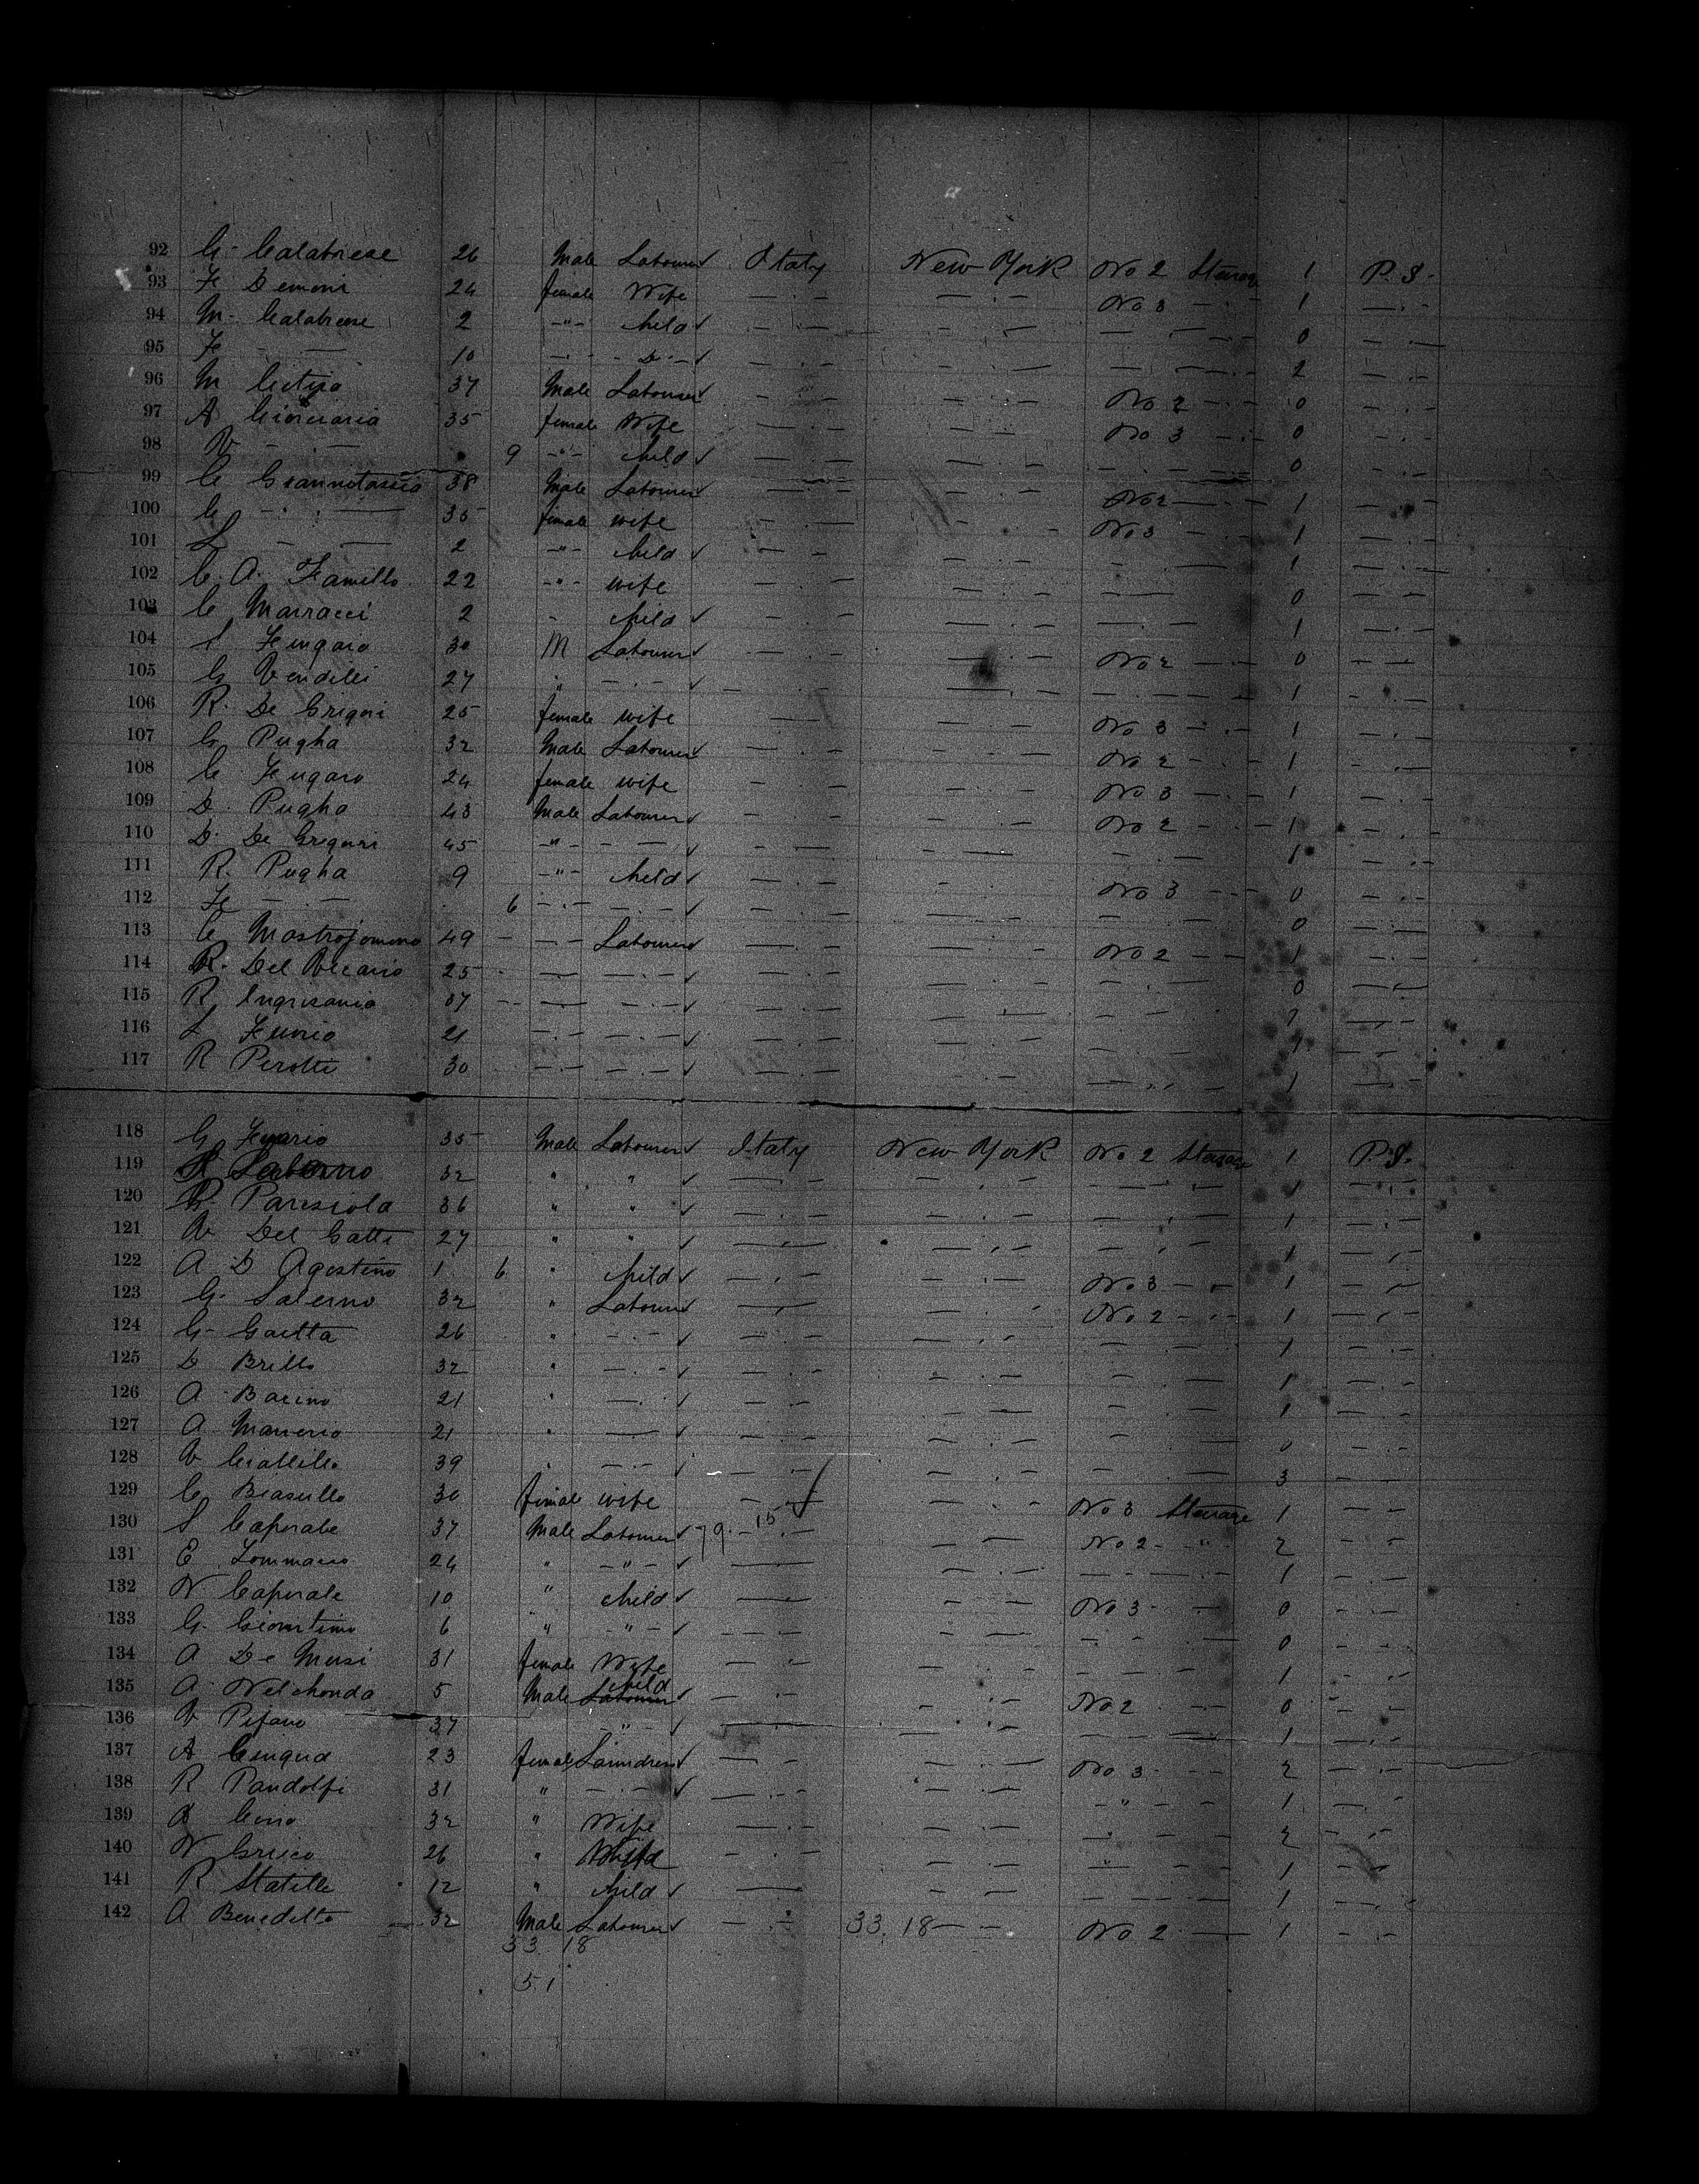 92 G. Calabriese 26 Male Labourer ✓ Italy New York No 2 Stearage 1 P.S.
93 F Demoni 24 female Wife — . — — . — No 3 — . — 1 — . —
94 M. Calabriese 2 — " — child ✓ — . — — . — — . — 0 — . —
95 F — — 10 — . — D. — ✓ — . — — . — — . — 2 — . —
96 M 37 Male Labourer ✓ — . — — . — No 2 — . — 0 — . —
97 A 35 female Wife — . — — . — No 3 — . — 0 — . —
98 V — — 9 — " — child ✓ — . — — . — — . — 0 — . —
99 C Giannotassio 38 Male Labourer ✓ — . — — . — No 2 — 1 — . —
100 C — . — 35 female wife — . — — . — No 3 — . — 1 — . —
101 L — — 2 — " — child ✓ — . — — . — — . — 1 — . —
102 C. A. Famillo 22 — " — wife — . — — . — — — 0 — . —
103 C Marracci 2 - child ✓ — . — — . — — . — 1 — . —
104 30 M Labourer ✓ — . — — . — No 2 — . — 0 — . —
105 G Vendilli 27 " — . — ✓ — . — — . — — . — 1 — . —
106 R. De Grigori 25 female wife — . — — . — No 3 — . — 1 — . —
107 G Pugha 32 Male Labourer ✓ — . — — . — No 2 — . — 1 — . —
108 C Fugaro 24 female wife — . — — . — No 3 — . — 1 — . —
109 D. Pugha 43 Male Labourer ✓ — . — — . — No 2 — . — 1 — . —
110 D. De Griguri 45 — " — — — ✓ — . — — . — — . — 1 — . —
111 R. Pugha 9 — " — child ✓ — . — — . — No 3 — — 0 — . —
112 F — . — 6 — . — — . — ✓ — . — — . — — . — 0 — . —
113 C Mastrojomino 49 — — Labourer ✓ — . — — . — No 2 — — 1 — . —
114 R. Del Vecario 25 — — . — ✓ — . — — . — — . — 0 — . —
115 R 37 — — . — ✓ — . — — . — — . — — . —
116 L 21 — . — — . — ✓ — . — — . — — . — 1 — . —
117 R Perotti 30 — . — — . — ✓ — . — — . — — . — 1 — . —
118 G 35 Male Labourer ✓ Italy New York No 2 Stearage 1 P.S.
119 32 " " ✓ — . — — . — — . — 1 — . —
120 Parisiola 36 " " ✓ — . — — . — — . — 1 — . —
121 V Del Gatti 27 " " ✓ — . — — . — — . — 1 — . —
122 A D Agostino 1 6 " child ✓ — . — — . — No 3 — 1 — . —
123 G. Salerno 32 " Labourer ✓ — . — — . — No 2 — . — 1 — . —
124 G. Gaetta 26 " — . — ✓ — . — — . — — . — 1 — . —
125 D Brillo 32 " — . — ✓ — . — — . — — . — 1 — . —
126 A Barino 21 " — . — ✓ — . — — . — — . — 1 — . —
127 A 21 " — ✓ — . — — . — — . — 0 — . —
128 V 39 " — . — ✓ — . — — . — — . — 3 — . —
129 C Biasullo 30 female wife — . — ✓ — . — No 3 Stearage 1 — —
130 S Caporale 37 Male Labourer ✓ 79. 15 — . — — — No 2 — " 2 — . —
131 E Lommaro 24 " — " — ✓ — — — — . — 1 — . —
132 N Caporale 10 " child ✓ — — — No 3 — 0 — . —
133 G. 6 " — " — ✓ — . — — . — — . — 0 — . —
134 A De Musi 31 female Wife — . — — . — — . — 1 — . —
135 A. Nelchonda 5 Male Labourer child ✓ — . — — . — No 2 0 — . —
136 V Pifano 37 — " — ✓ — . — — . — — . — 1 — . —
137 A 23 female Laundress ✓ — . — — . — No 3 — 2 — . —
138 R Pandolfi 31 " — . — ✓ — . — — . — — " — 1 — . —
139 32 " Wife — . — — . — — " — 2 — . —
140 N Grieco 26 " — . — — . — — " — 1 — . —
141 R Statille 12 " child ✓ — — — — — — 1 — . —
142 A Benedetto 32 Male Labourer ✓ — . — 33. 18 — — No 2 — 1 — . —
33. 18
51